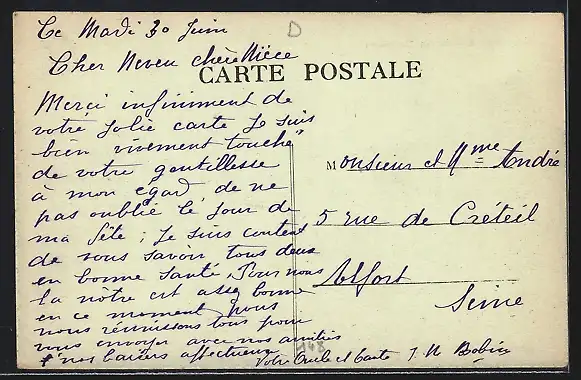 Ce Mardi 30 Juin
D
Cher Neveu chère Nièce
CARTE POSTALE
Merci infiniment de
votre jolie carte Je suis
bien vivement touché
de votre gentillesse
à mon égard, de ne
pas oublié le jour de
ma fête ; Je suis content
de vous savoir tous deux
en bonne santé, Pour nous
la nôtre est assez bonne
en ce moment, nous
nous réunissons tous pour
vous envoyer avec nos amitiés
nos baisers affectueux
Votre Oncle et Tante J. M Bobin
Monsieur et Mme André
5 rue de Créteil
Alfort
Seine